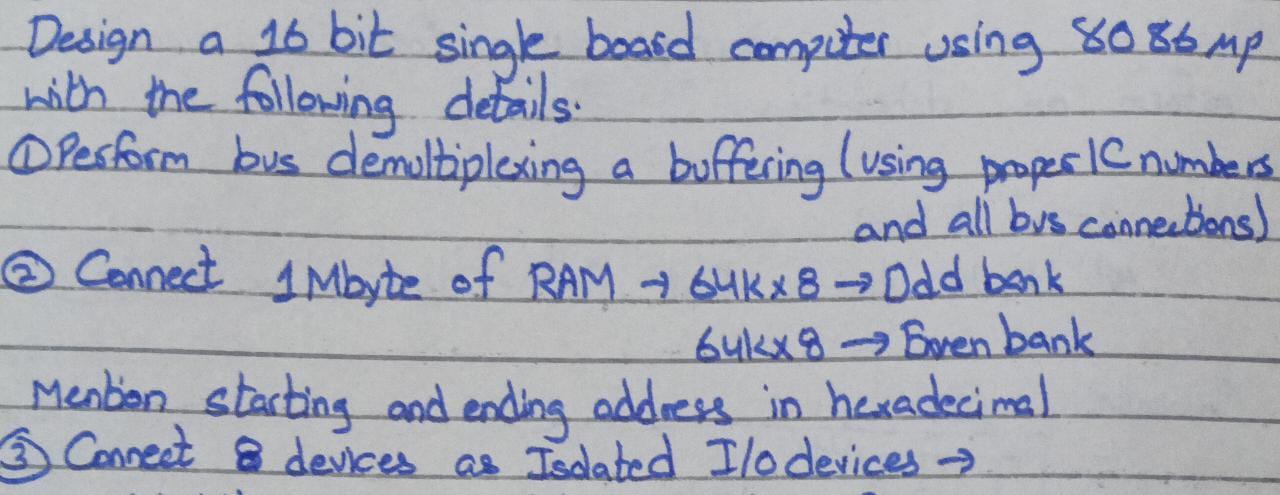 Design a 16 bit single board computer using 8086 μp
with the following details.
① Perform bus demultiplexing a buffering (using proper IC numbers
and all bus connections)
② Connect 1Mbyte of RAM → 64K×8 → Odd bank
64k×8 → Even bank
Mention starting and ending address in hexadecimal
③ Connect 8 devices as Isolated I/O devices →